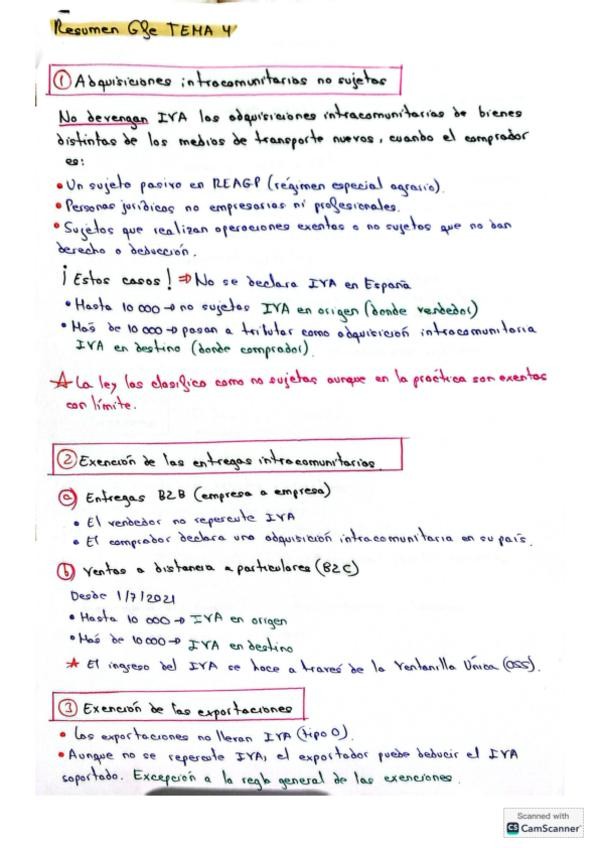 Resumen GFe TEMA 4
① Adquisiciones intracomunitarias no sujetas
No devengan IVA las adquisiciones intracomunitarias de bienes
distintas de los medios de transporte nuevos, cuando el comprador
es:
• Un sujeto pasivo en REAGP (régimen especial agrario).
• Personas jurídicas no empresarias ni profesionales.
• Sujetos que realizan operaciones exentas o no sujetas que no dan
derecho a deducción.
¡Estos casos! ⇒ No se declara IVA en España
• Hasta 10 000 → no sujetas IVA en origen (donde vendedor)
• Más de 10 000 → pasan a tributar como adquisición intracomunitaria
IVA en destino (donde comprador).
☆ La ley las clasifica como no sujetas aunque en la práctica son exentas
con límite.
② Exención de las entregas intracomunitarias
ⓐ Entregas B2B (empresa a empresa)
• El vendedor no repercute IVA
• El comprador declara una adquisición intracomunitaria en su país.
ⓑ Ventas a distancia a particulares (B2C)
Desde 1/7/2021
• Hasta 10 000 → IVA en origen
• Más de 10 000 → IVA en destino
★ El ingreso del IVA se hace a través de la Ventanilla Única (OSS).
③ Exención de las exportaciones
• Las exportaciones no llevan IVA (tipo 0).
• Aunque no se repercute IVA, el exportador puede deducir el IVA
soportado. Excepción a la regla general de las exenciones.
Scanned with
CS CamScanner